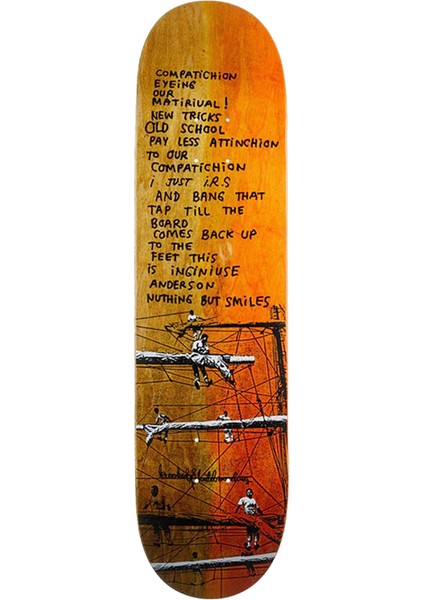 COMPATICHION
EYEING
OUR
MATIRIUAL!
NEW TRICKS
OLD SCHOOL
PAY LESS ATTINCHION
TO OUR
COMPATICHION
i JUST i.R.S
AND BANG THAT
TAP TILL THE
BOARD
COMES BACK UP
TO THE
FEET THIS
IS INGINIUSE
ANDERSON
NUTHING BUT SMILES